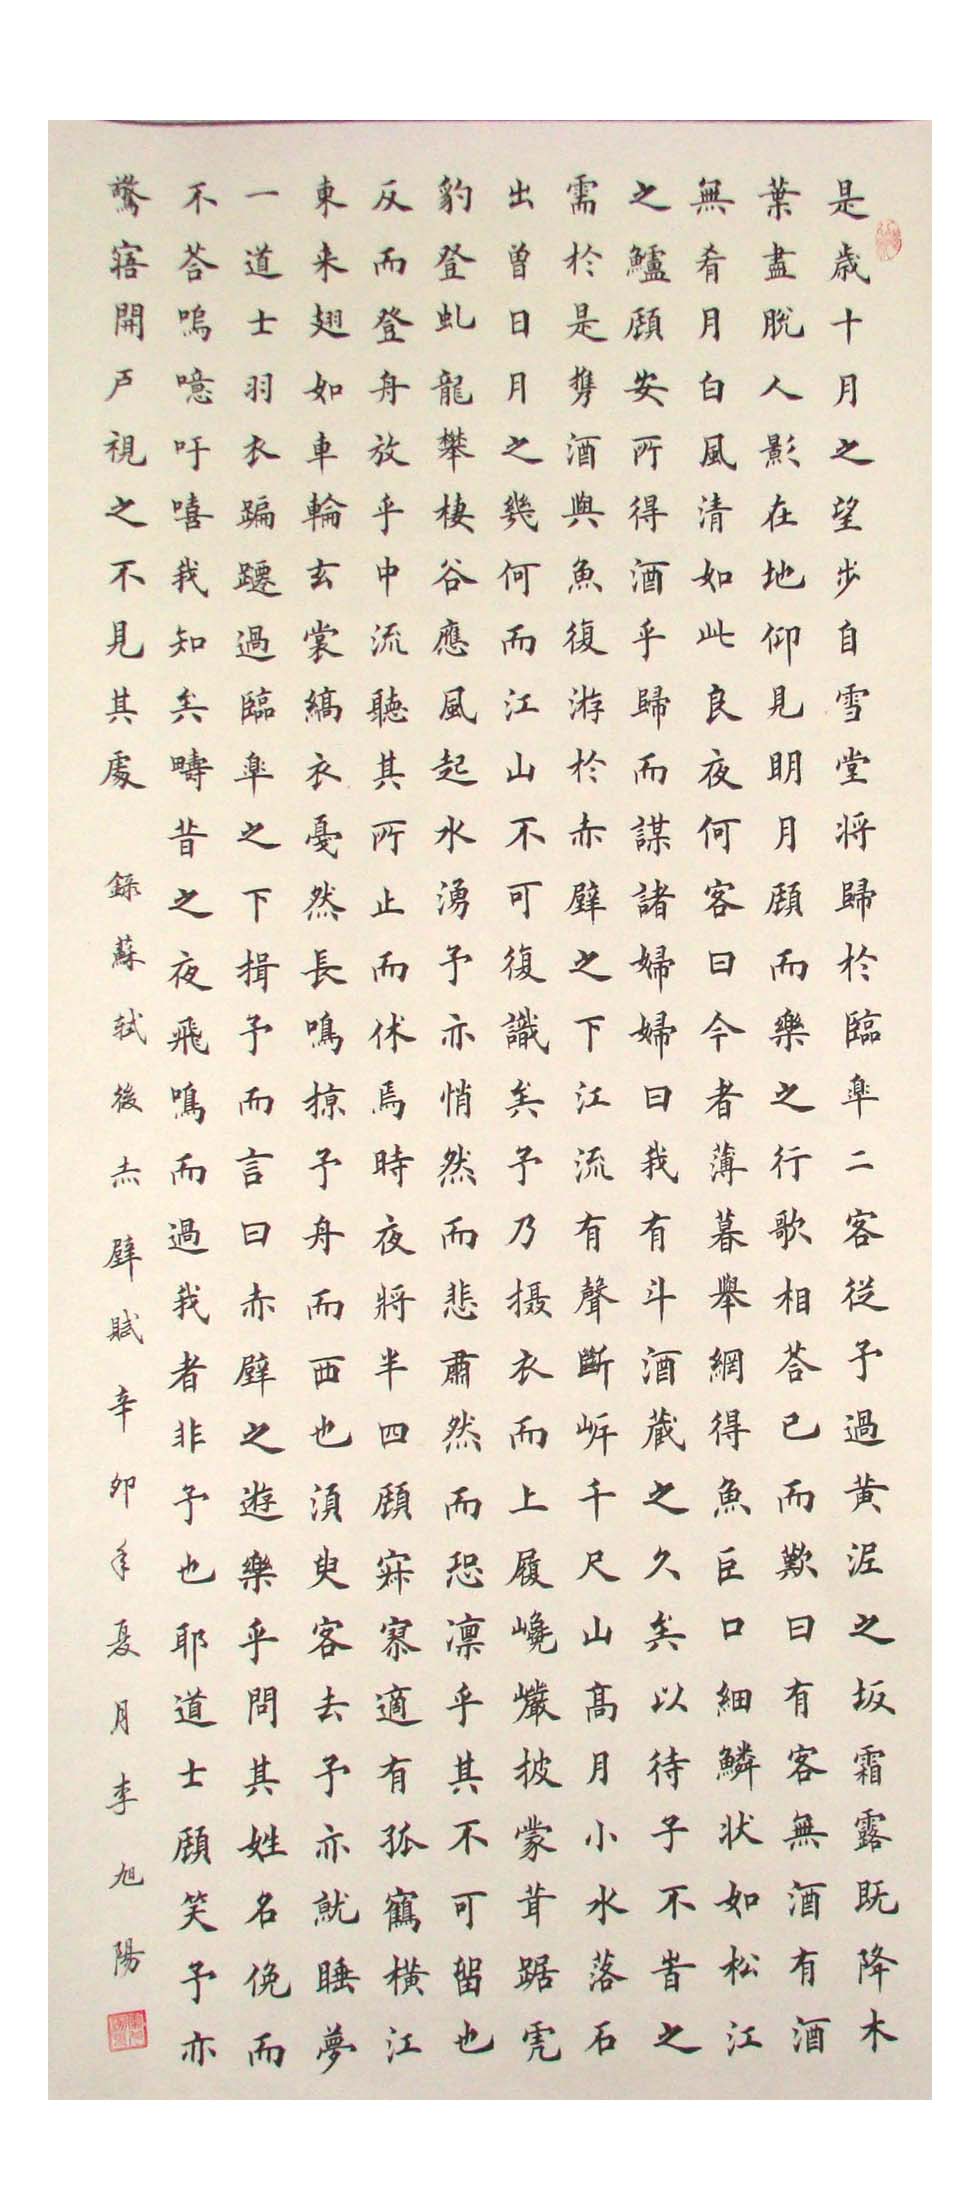 是歳十月之望步自雪堂将歸於臨臯二客從予過黄泥之坂霜露既降木
葉盡脫人影在地仰見明月顧而樂之行歌相荅已而歎曰有客無酒有酒
無肴月白風清如此良夜何客曰今者薄暮舉網得魚巨口細鱗状如松江
之鱸顧安所得酒乎歸而謀諸婦婦曰我有斗酒藏之久矣以待子不旹之
需於是携酒與魚復游於赤壁之下江流有聲斷岸千尺山高月小水落石
出曽日月之幾何而江山不可復識矣予乃摄衣而上履巉巖披蒙茸踞虎
豹登虬龍攀棲谷應風起水湧予亦悄然而悲肅然而恐凛乎其不可留也
反而登舟放乎中流聽其所止而休焉時夜将半四顧寂寥適有孤鶴横江
東来翅如車輪玄裳縞衣憂然長鳴掠予舟而西也須臾客去予亦就睡夢
一道士羽衣蹁躚過臨臯之下揖予而言曰赤壁之遊樂乎問其姓名俛而
不荅嗚噫吁嘻我知矣疇昔之夜飛鳴而過我者非予也耶道士顧笑予亦
驚寤開戸視之不見其處 録蘇轼後赤壁賦 辛卯年夏月李旭陽